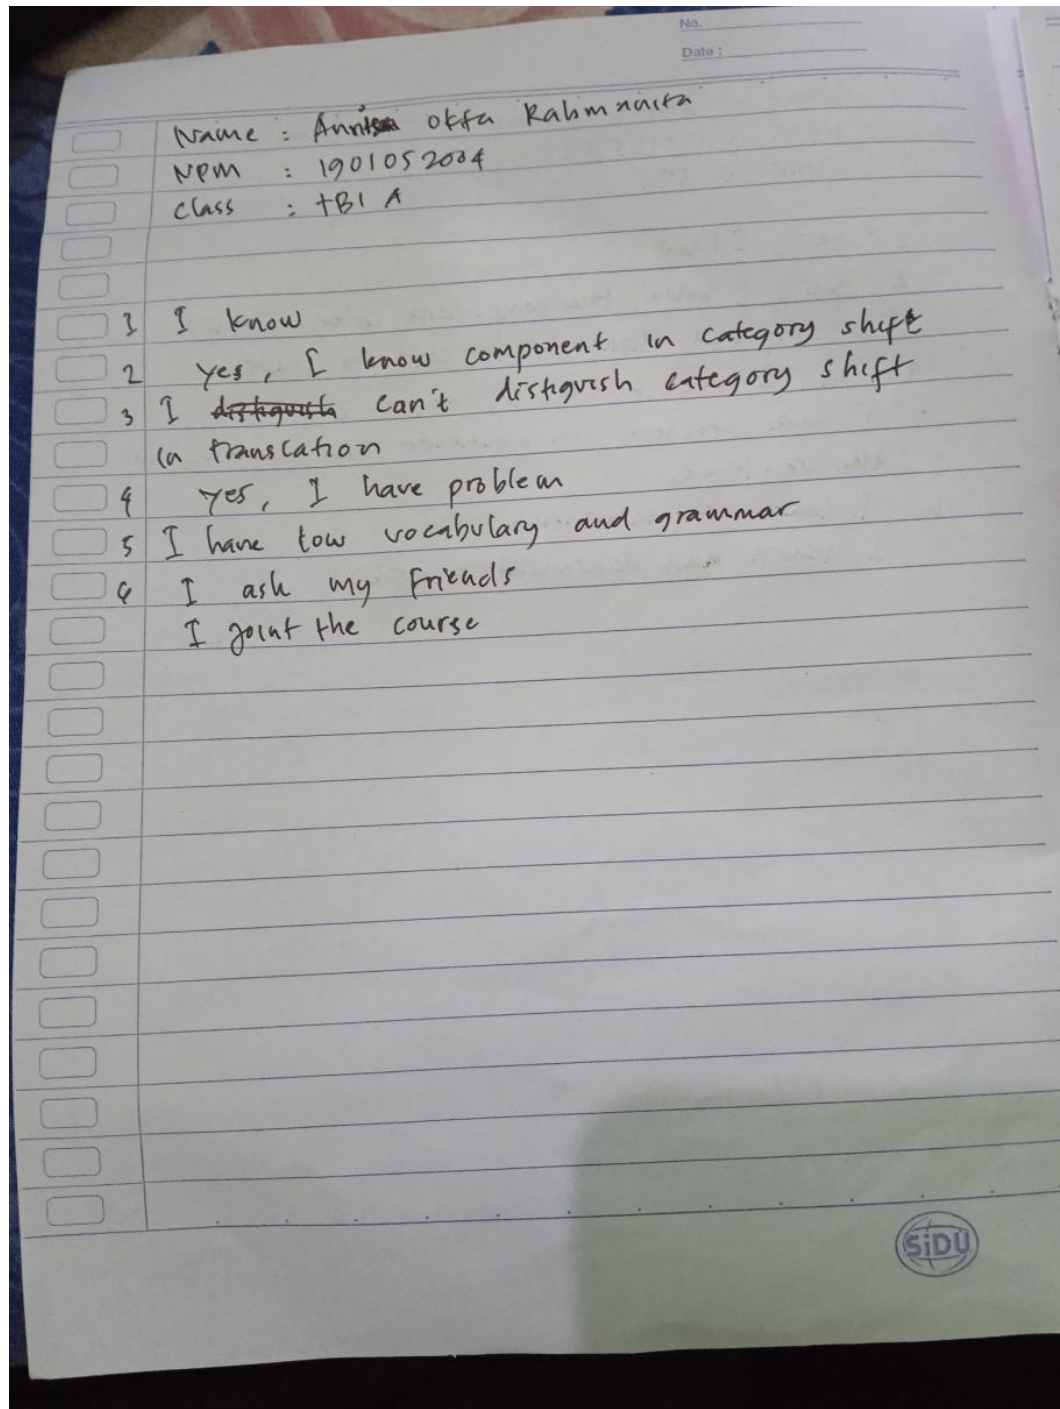 No.
Date :
Name : Annisa Okta Rahmanita
NPM : 1901052004
Class : TBI A
1 I know
2 Yes, I know component in category shift
3 I distiquish can't distiquish category shift
in translation
4 Yes, I have problem
5 I have low vocabulary and grammar
6 I ask my friends
I joint the course
SiDU